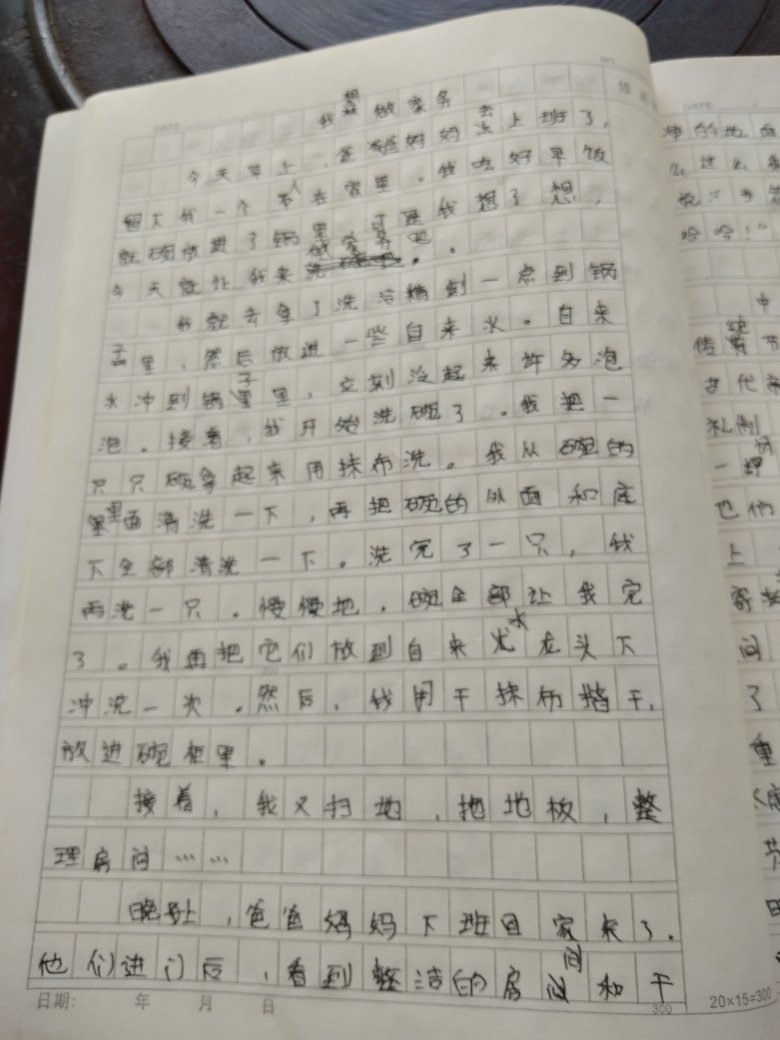 我想做家务
今天早上,爸爸妈妈去上班了,
留下我一个人在家里。我吃好早饭
就碗放进了锅里,可是我想了想,
今天就让我来做家务吧。
我就去拿了洗洁精倒一点到锅
子里,然后放进一些自来水。自来
水冲到锅子里,立刻泛起来许多泡
泡。接着,我开始洗碗了。我把一
只只碗拿起来用抹布洗。我从碗的
里面清洗一下,再把碗的外面和底
下全部清洗一下。洗完了一只,我
再洗一只。慢慢地,碗全部让我完
了。我再把它们放到自来水龙头下
冲洗一次。然后,我用干抹布揩干,
放进碗柜里。
接着,我又扫地,拖地板,整
理房间……
晚上,爸爸妈妈下班回家来了。
他们进门后,看到整洁的房间和干
日期: 年 月 日
300
DATE
净的地面
说:"
哈哈!"
中
传统节
古代
礼
一
也
上
间
了
重
节
20×15=300
DATE